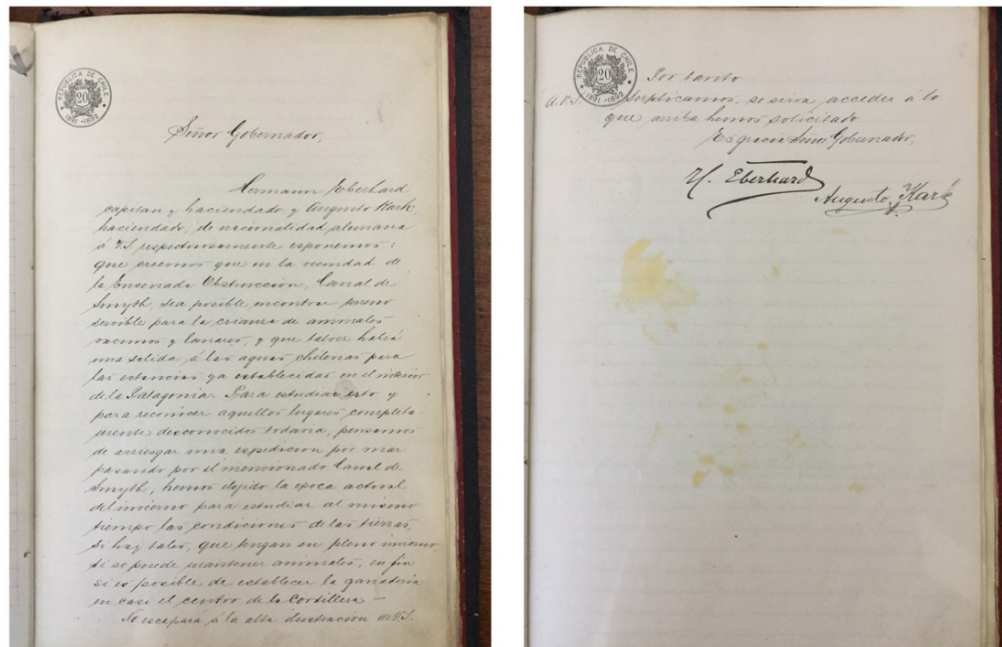 REPUBLICA DE CHILE
20
1891-1892
Señor Gobernador,
Hermann Eberhard
capitan y haciendado y Augusto Kark
haciendado, de nacionalidad alemana
á V.S. respetuosamente esponemos:
que creemos que en la vecindad de
la Ensenada Obstruccion, Canal de
Smyth, sea posible encontrar terreno
servible para la crianza de animales
vacunos y lanares, y que talvez habrá
una salida á las aguas chilenas para
las estancias ya establecidas en el interior
de la Patagonia. Para estudiar esto y
para reconocer aquellos lugares completa-
mente desconocidos todavia, pensamos
de arriesgar una espedicion por mar
pasando por el mencionado Canal de
Smyth, hemos elejido la epoca actual
del invierno para estudiar al mismo
tiempo las condiciones de las tierras,
si hay tales, que tengan en pleno invierno
si se puede mantener animales, en fin
si es posible de establecer la ganaderia
en casi el centro de la Cordillera —
No escapará á la alta ilustracion de V.S.
REPUBLICA DE CHILE
20
1891-1892
Por tanto
A.V.S. Suplicamos, se sirva acceder á lo
que arriba hemos solicitado
Es gracia Señor Gobernador,
H. Eberhard
Augusto Kark